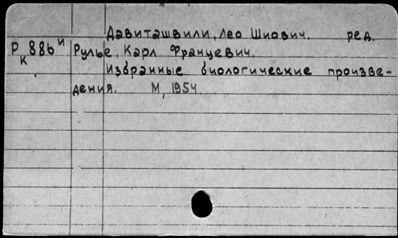 Давиташвили, Лео Шиович. ред.
Р 886 и Рулье, Карл Францевич.
К
Избранные биологические произве-
дения. М, 1954.